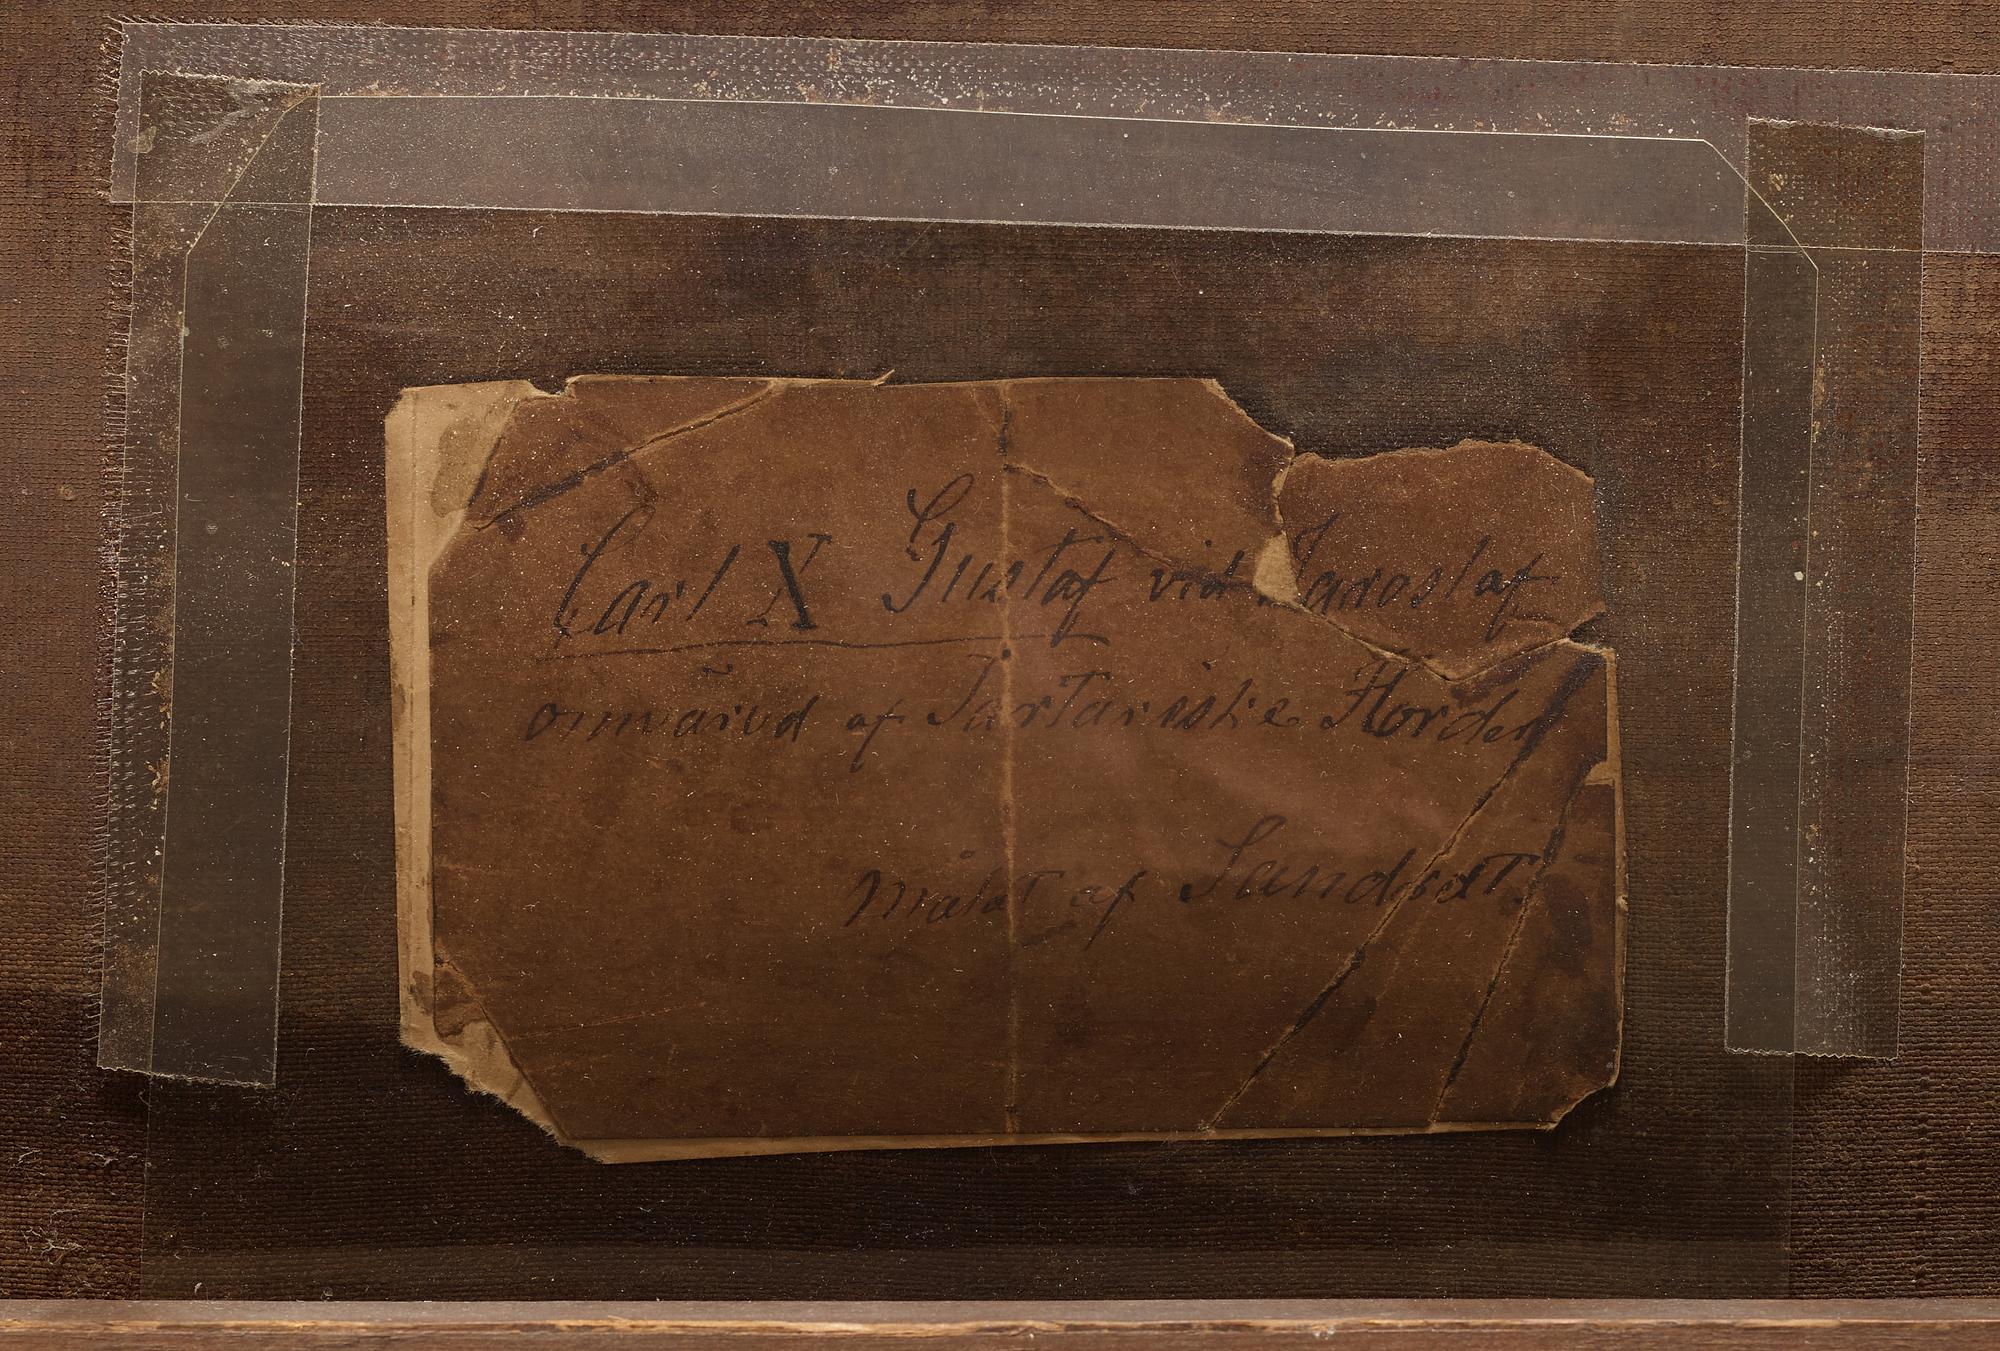 Carl X Gustaf vid Jaroslaf
omvärvd af Tartariske Horder
målat af Sandrat.